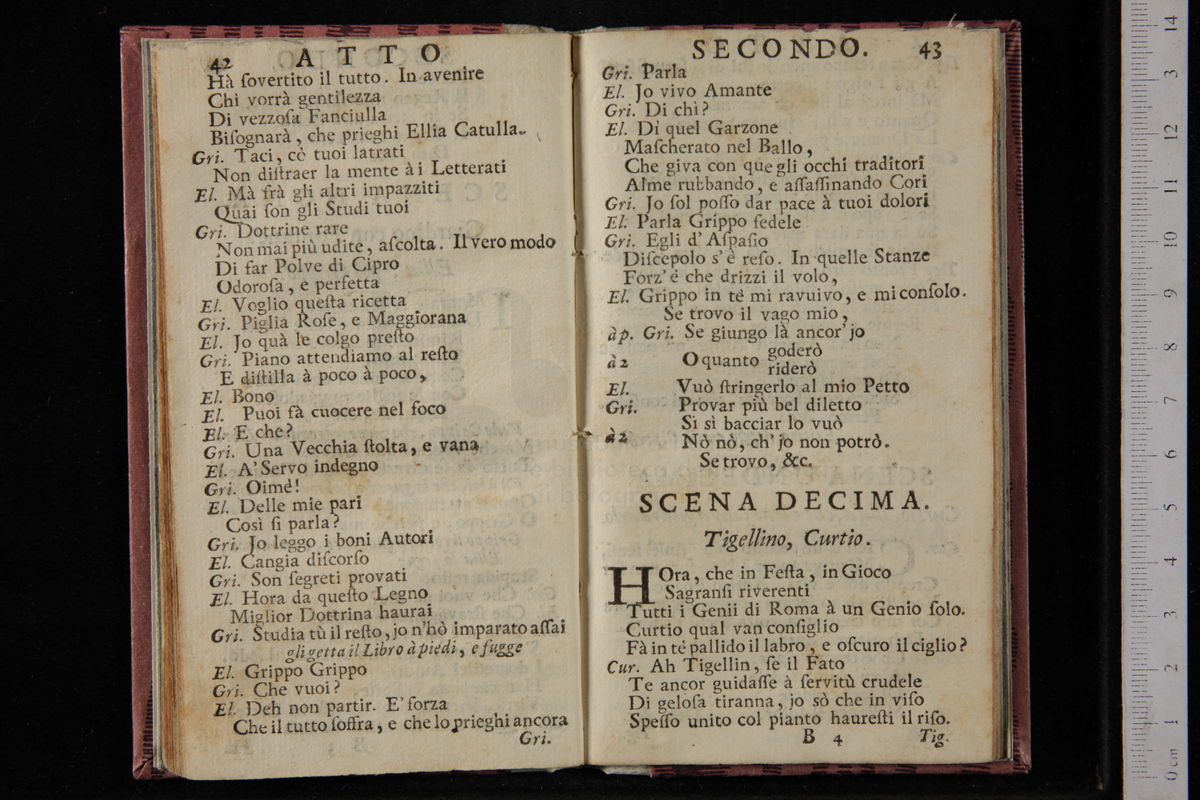 42 ATTO
Hà ſovertito il tutto. In avenire
Chi vorrà gentilezza
Di vezzoſa Fanciulla
Biſognarà, che prieghi Ellia Catulla.
Gri. Taci, cò tuoi latrati
Non diſtraer la mente à i Letterati
El. Mà frà gli altri impazziti
Quai ſon gli Studi tuoi
Gri. Dottrine rare
Non mai più udite, aſcolta. Il vero modo
Di far Polve di Cipro
Odoroſa, e perfetta
El. Voglio queſta ricetta
Gri. Piglia Roſe, e Maggiorana
El. Jo quà le colgo preſto
Gri. Piano attendiamo al reſto
E diſtilla à poco à poco,
El. Bono
El. Puoi fà cuocere nel foco
El. E che?
Gri. Una Vecchia ſtolta, e vana
El. A' Servo indegno
Gri. Oimè!
El. Delle mie pari
Così ſi parla?
Gri. Jo leggo i boni Autori
El. Cangia diſcorſo
Gri. Son ſegreti provati
El. Hora da queſto Legno
Miglior Dottrina haurai
Gri. Studia tù il reſto, jo n'hò imparato aſſai
gli getta il Libro à piedi, e fugge
El. Grippo Grippo
Gri. Che vuoi?
El. Deh non partir. E' forza
Che il tutto ſoffra, e che lo prieghi ancora
Gri.
SECONDO. 43
Gri. Parla
El. Jo vivo Amante
Gri. Di chì?
El. Di quel Garzone
Maſcherato nel Ballo,
Che giva con que gli occhi traditori
Alme rubbando, e aſſaſſinando Cori
Gri. Jo ſol poſſo dar pace à tuoi dolori
El. Parla Grippo fedele
Gri. Egli d' Aſpaſio
Diſcepolo s' è reſo. In quelle Stanze
Forz' é che drizzi il volo,
El. Grippo in té mi ravuivo, e mi conſolo.
Se trovo il vago mio,
àp. Gri. Se giungo là ancor' jo
à 2 O quanto goderò
riderò
El. Vuò ſtringerlo al mio Petto
Gri. Provar più bel diletto
Si sì bacciar lo vuò
à 2 Nò nò, ch' jo non potrò.
Se trovo, &c.
SCENA DECIMA.
Tigellino, Curtio.
HOra, che in Feſta, in Gioco
Sagranſi riverenti
Tutti i Genii di Roma à un Genio ſolo.
Curtio qual van conſiglio
Fà in té pallido il labro, e oſcuro il ciglio?
Cur. Ah Tigellin, ſe il Fato
Te ancor guidaſſe à ſervitù crudele
Di geloſa tiranna, jo sò che in viſo
Speſſo unito col pianto haureſti il riſo.
B 4 Tig.
14
13
12
11
10
9
8
7
6
5
4
3
2
1
0 cm